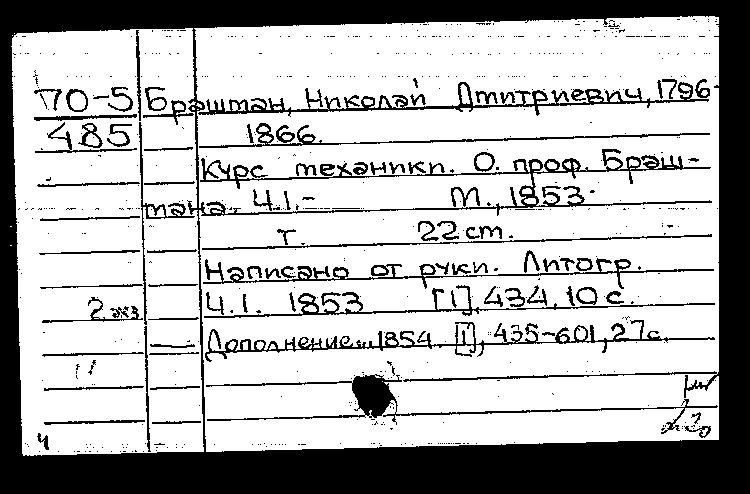 70-5 Брашман, Николай Дмитриевич, 1796-
485 1866.
Курс механики. О. проф. Браш-
мана. Ч.1.- М., 1853.
т. 22 cm.
Написано от руки. Литогр.
2 экз Ч.1. 1853 [1], 434, 10 с.
— Дополнение... 1854. [1], 435-601, 27 с.
ч